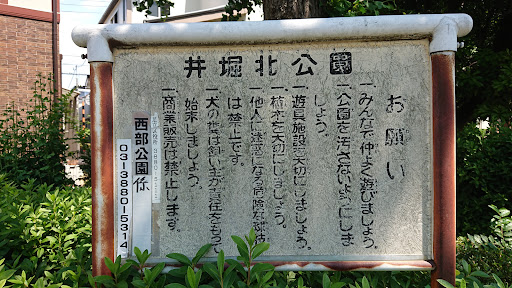 井堀北公園
お願い
一みんなで仲よく遊びましょう。
一公園を汚さないようにしま
しょう。
一遊具施設を大切にしましょう。
一植木を大切にしましょう。
一他人に迷惑になる危険な球技
は禁止です。
一犬の糞は飼い主が責任をもって
始末しましょう。
一商業販売は禁止します。
西部公園係
03-3880-5314